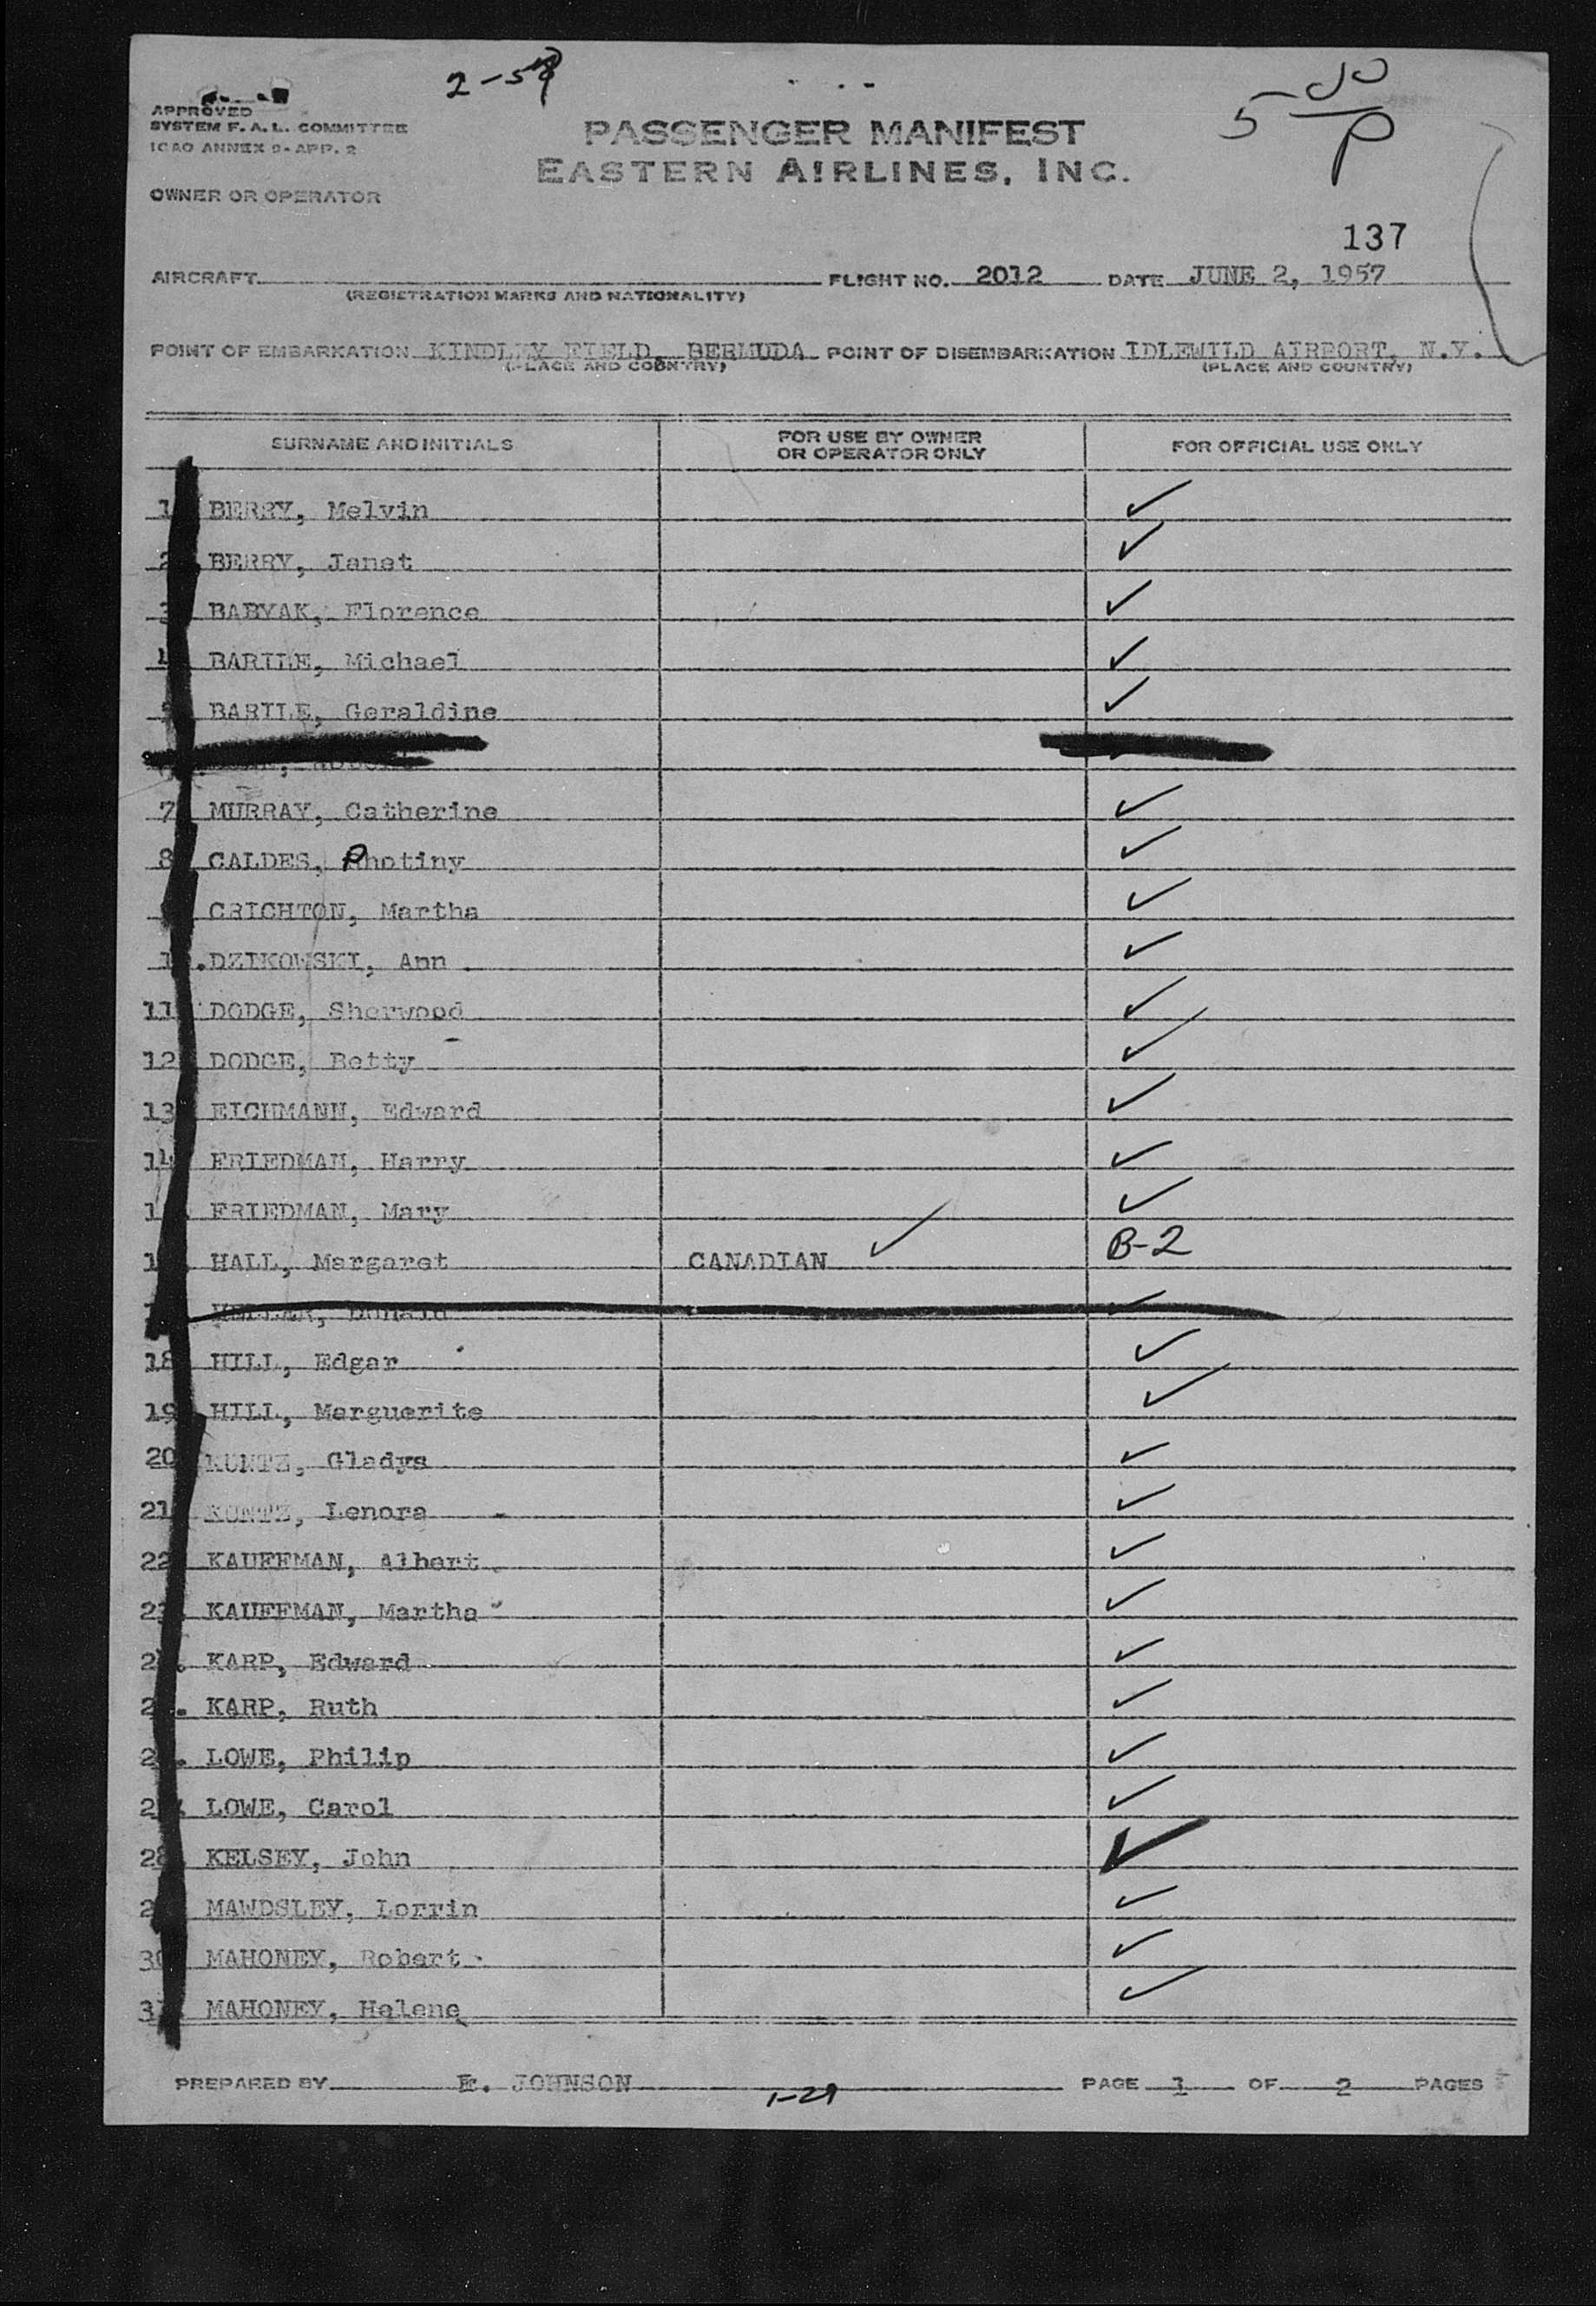 2-59
APPROVED
SYSTEM F. A. L. COMMITTEE
ICAO ANNEX 9 - APP. 2
PASSENGER MANIFEST
EASTERN AIRLINES, INC.
OWNER OR OPERATOR
137
AIRCRAFT FLIGHT NO. 2012 DATE JUNE 2, 1957
(REGISTRATION MARKS AND NATIONALITY)
POINT OF EMBARKATION KINDLEY FIELD, BERMUDA POINT OF DISEMBARKATION IDLEWILD AIRPORT, N.Y.
(PLACE AND COUNTRY) (PLACE AND COUNTRY)
SURNAME AND INITIALS FOR USE BY OWNER OR OPERATOR ONLY FOR OFFICIAL USE ONLY
1 BERRY, Melvin ✓
2 BERRY, Janet ✓
3 BABYAK, Florence ✓
4 BARTLE, Michael ✓
5 BARTLE, Geraldine ✓
7 MURRAY, Catherine ✓
8 CALDES, Photiny ✓
CRICHTON, Martha ✓
1 . DZIKOWSKI, Ann ✓
11 DODGE, Sherwood ✓
12 DODGE, Betty ✓
13 EICHMANN, Edward ✓
14 FRIEDMAN, Harry ✓
1 . FRIEDMAN, Mary ✓
1 . HALL, Margaret CANADIAN ✓ B-2
Donald ✓
18 HILL, Edgar ✓
19 HILL, Marguerite ✓
20 KUNTZ, Gladys ✓
21 KUNTZ, Lenora ✓
22 KAUFFMAN, Albert ✓
23. KAUFFMAN, Martha ✓
2 . KARP, Edward ✓
2 . KARP, Ruth ✓
2 . LOWE, Philip ✓
2 . LOWE, Carol ✓
28 KELSEY, John ✓
2 MAWDSLEY, Lorrin ✓
30 MAHONEY, Robert ✓
3 MAHONEY, Helene ✓
PREPARED BY E. JOHNSON PAGE 1 OF 2 PAGES
1-29